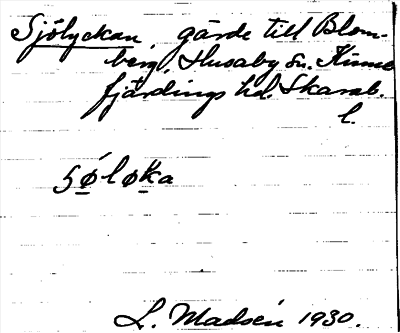 Sjölyckan, gärde till Blom-
berg, Husaby sn. Kinne
fjärdings hd. Skarab.
l.
søløka
L. Madsén 1930.